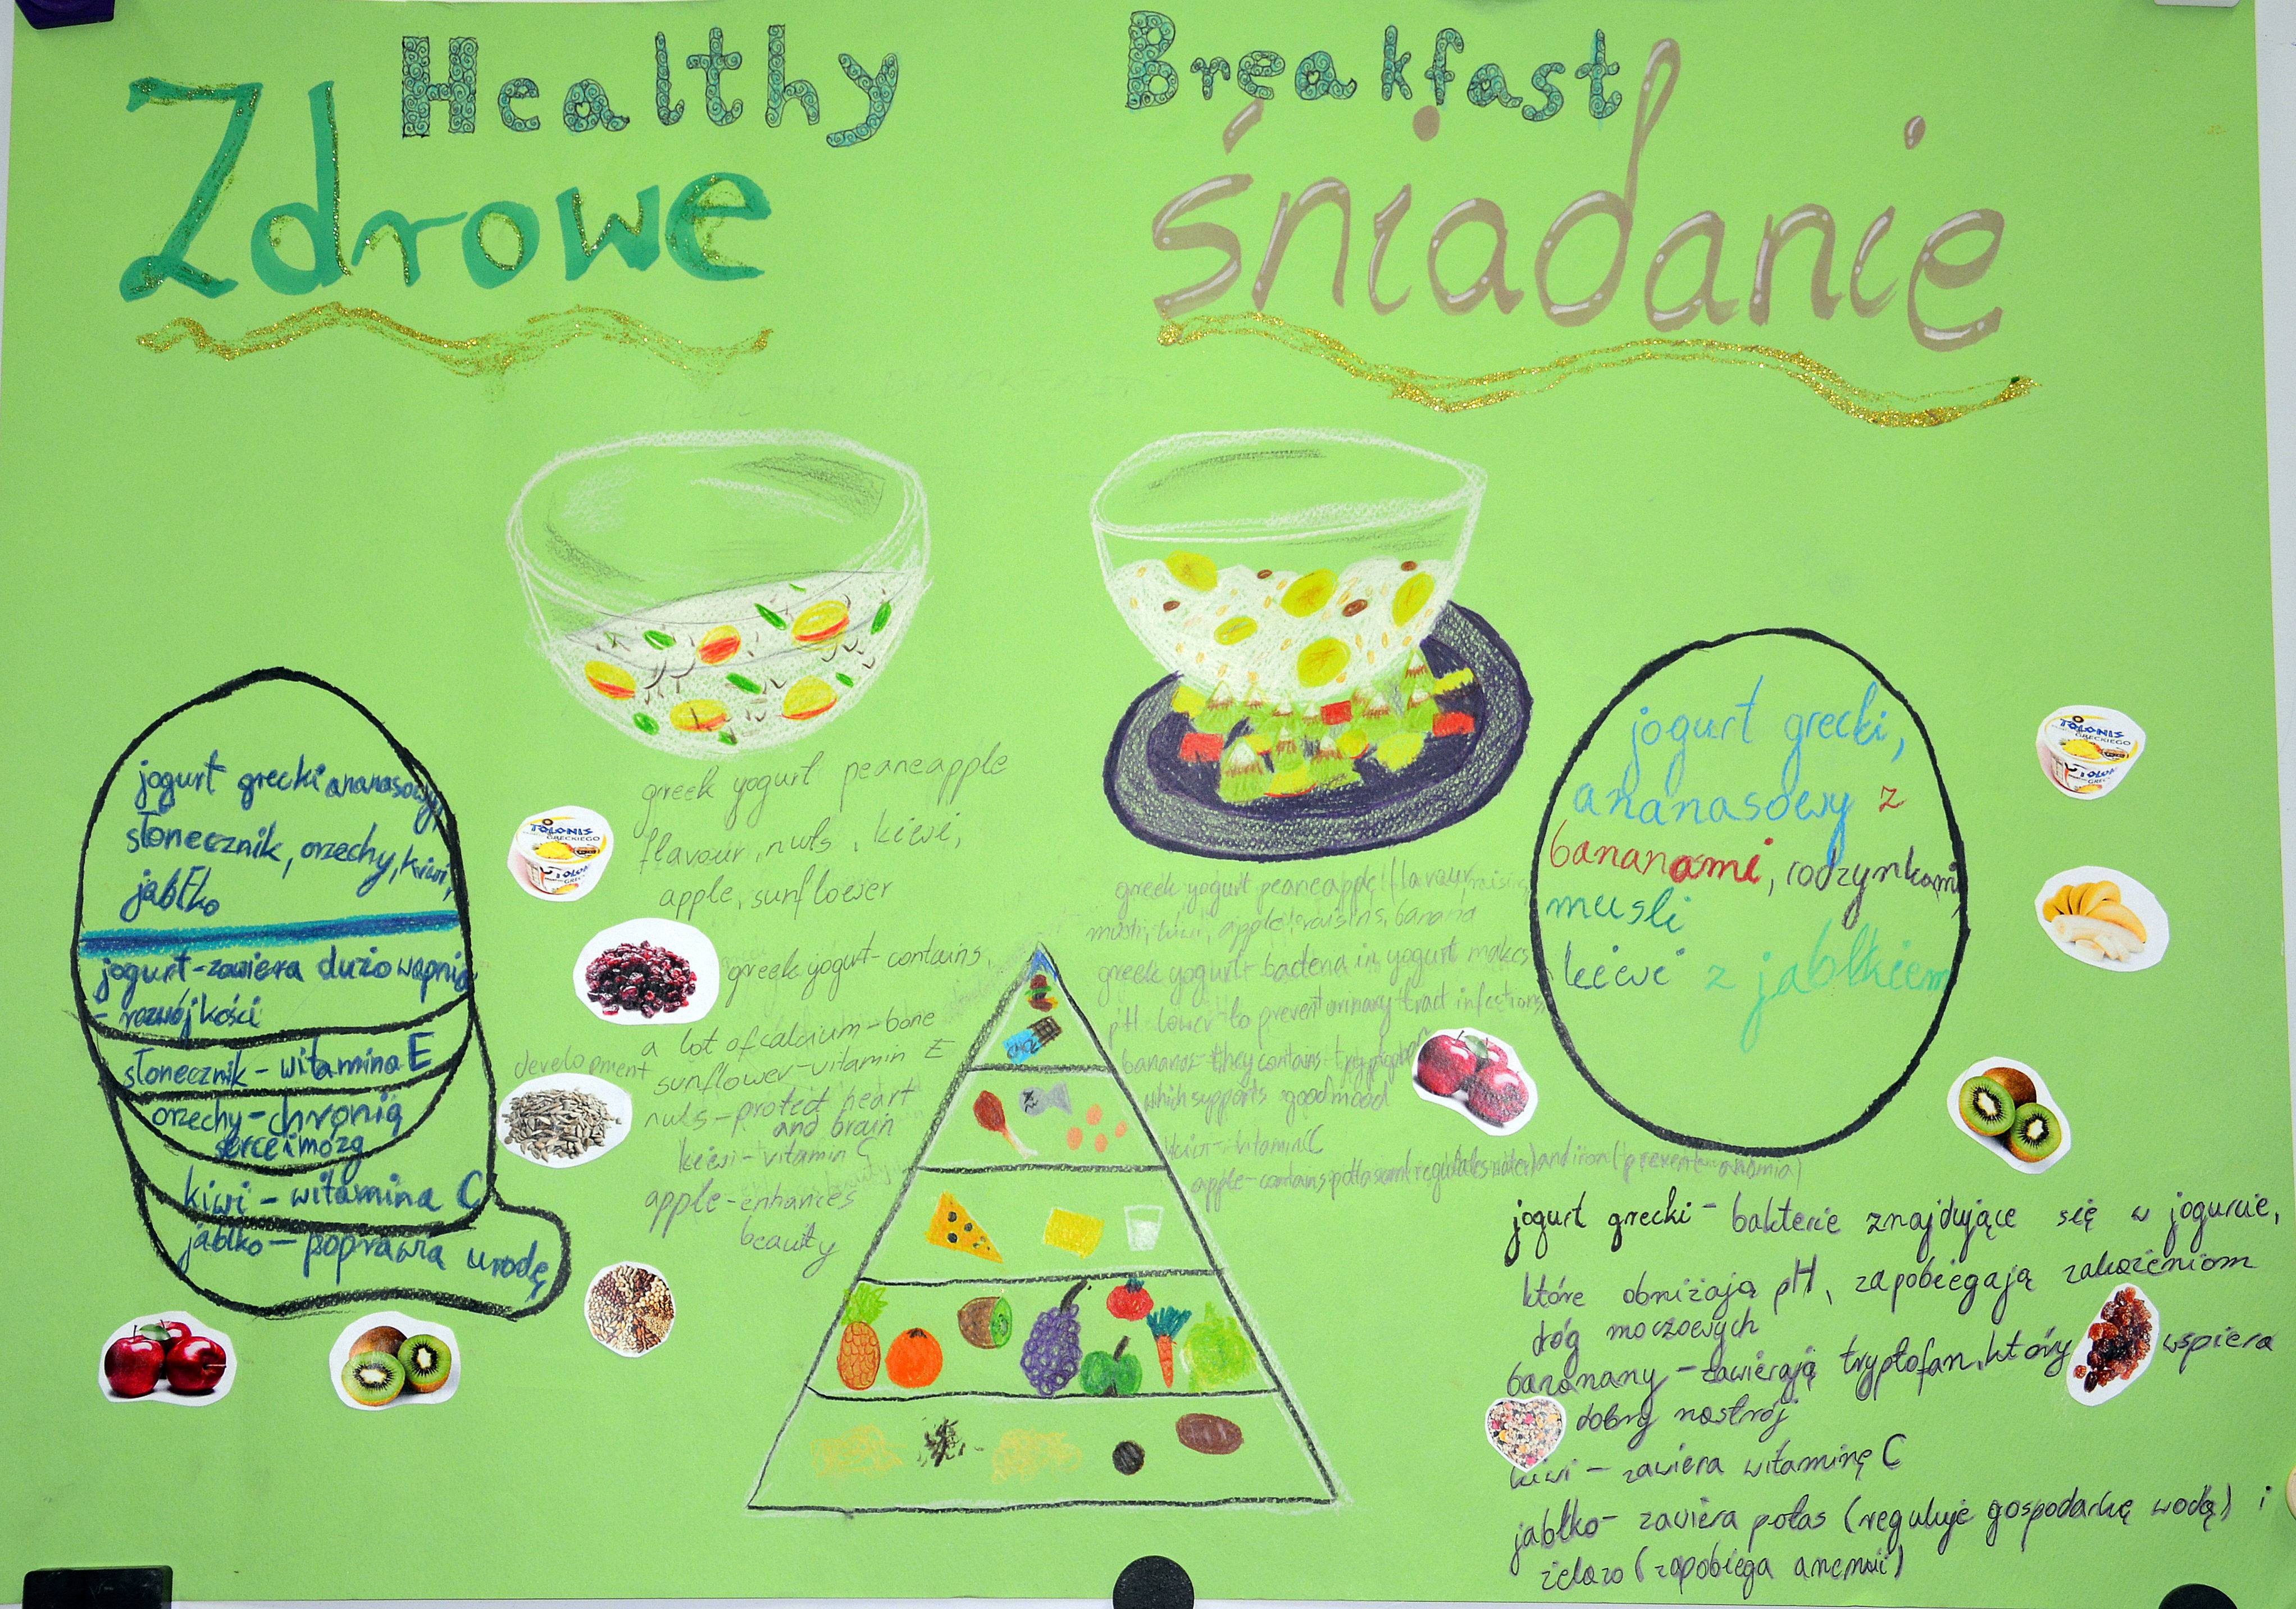 Healthy Breakfast
Zdrowe śniadanie
jogurt grecki ananasowy,
słonecznik, orzechy, kiwi,
jabłko
jogurt-zawiera dużo wapnia
- rozwój kości
słonecznik - witamina E
orzechy - chronią
serce i mózg
kiwi - witamina C
jabłko - poprawia urodę
greek yogurt peaneapple
flavour, nuts, kiwi,
apple, sunflower
greek yogurt - contains
a lot of calcium - bone
development
sunflower - vitamin E
nuts - protect heart
and brain
kiwi - vitamin C
apple - enhances
beauty
TOLONIS
GRECKIEGO
greek yogurt peaneapple flavour, raisins
musli, kiwi, apple, raisins, banana
greek yogurt - bacteria in yogurt makes
pH lower to prevent urinary tract infections
bananas - they contains
which supports good mood
kiwi - vitamin C
apple - contains potassium (regulates water) and iron (prevent anemia)
jogurt grecki,
ananasowy z
bananami, rodzynkami,
musli
kiwi z jabłkiem
TOLONIS
GRECKIEGO
jogurt grecki - bakterie znajdujące się w jogurcie,
które obniżają pH, zapobiegają zakażeniom
dróg moczowych
bananany - zawierają tryptofan, który wspiera
dobry nastrój
kiwi - zawiera witaminę C
jabłko - zawiera potas (reguluje gospodarkę wodą) i
żelazo (zapobiega anemii)